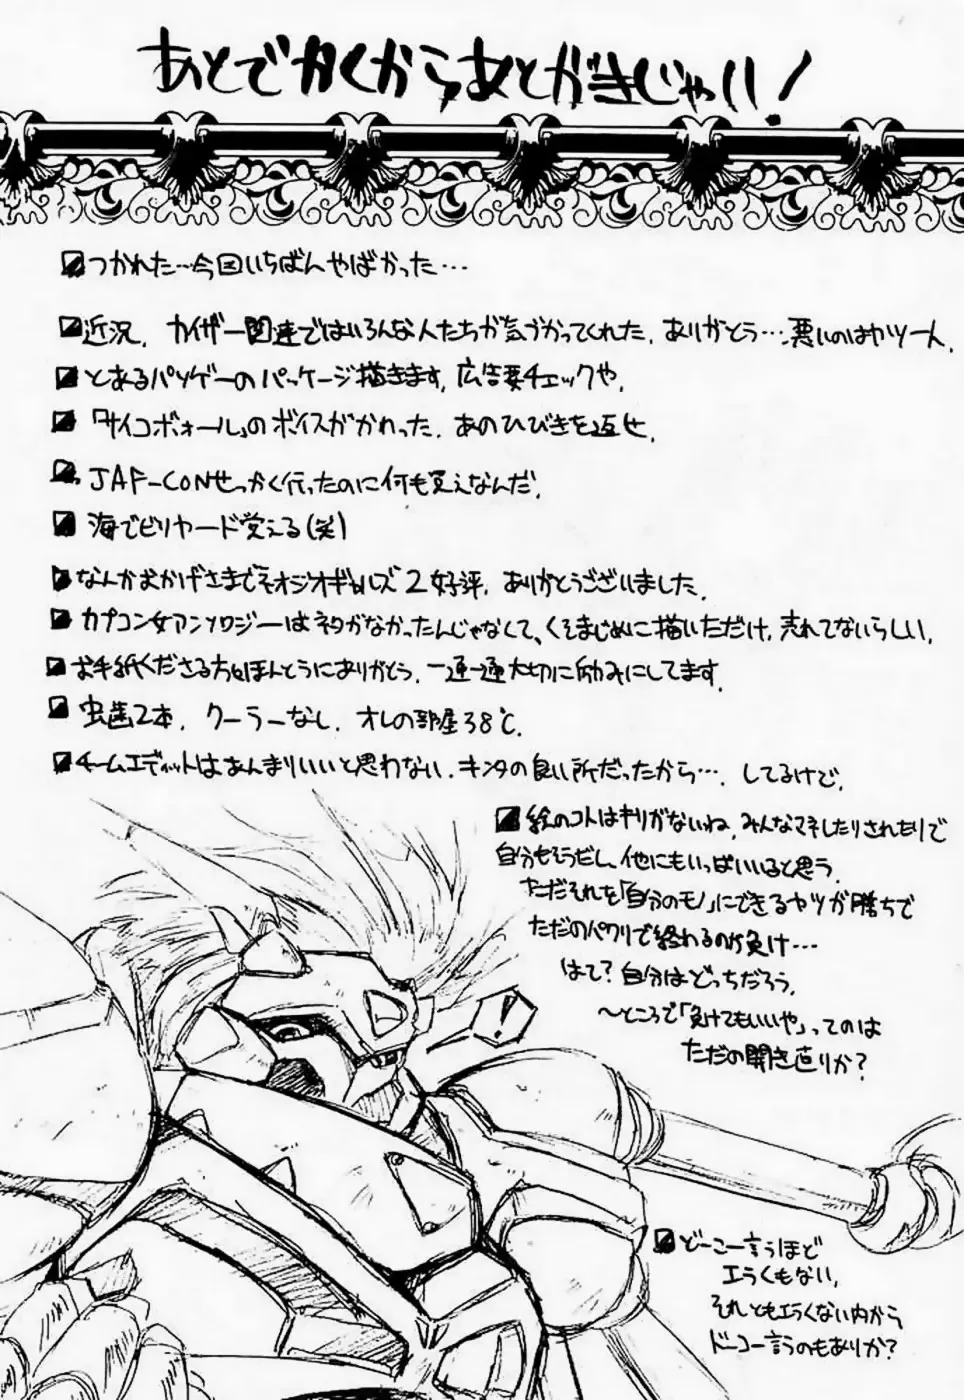 あとでかくからあとがきじゃい!
つかれた…今回いちばんやばかった…
近況. カイザー関連ではいろんな人たちが気づかってくれた. ありがとう…. 悪いのはヤツ一人.
とあるパソゲーのパッケージ描きます. 広告要チェックや.
「サイコボォール」のボイスがかわった. あのひびきを返せ.
JAF-CONせっかく行ったのに何も覚えなんだ.
海でビリヤード覚える(笑)
なんかおかげさまでネオジオギャルズ2好評. ありがとうございました.
カプコン女アンソロジーはネタがなかったんじゃなくて、くそまじめに描いただけ. 売れてないらしい.
お手紙くださる方ほんとうにありがとう. 一通一通大切に励みにしてます.
虫歯2本. クーラーなし. オレの部屋38℃.
チームエディットはあんまりいいと思わない. キンタの良い所だったから…. してるけど.
絵のコトはキリがないね. みんなマネしたりされたりで
自分もそうだし. 他にもいっぱいいると思う.
ただそれを「自分のモノ」にできるヤツが勝ちで
ただのパクリで終わるのが負け…
はて? 自分はどっちだろう.
〜ところで「負けてもいいや」ってのは
ただの開き直りか?
!
どーこー言うほど
エラくもない.
それともエラくない内から
ドーコー言うのもありか?